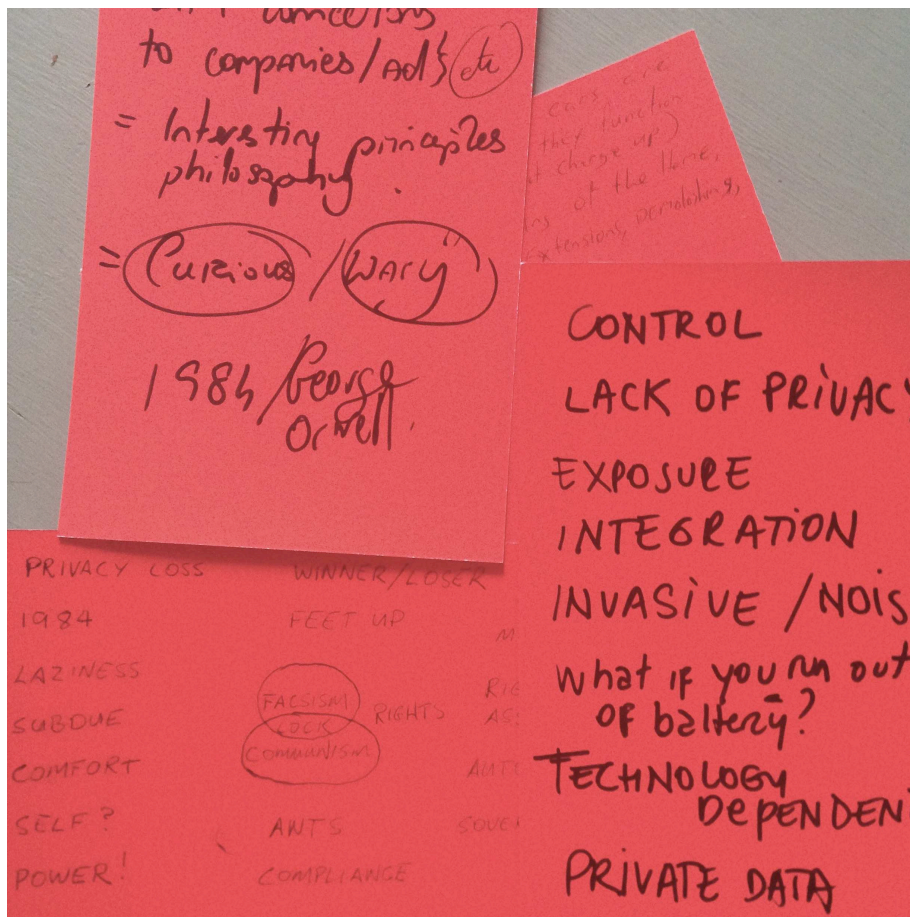 to companies/Ad's etc
= Interesting principles
philosophy.
= Curious / "Wary"
1984 / George
Orwell.
cars are
they function
charge up)
of the Home,
Extensions, Demolishing,
CONTROL
LACK OF PRIVACY
EXPOSURE
INTEGRATION
INVASIVE / NOIS
What if you run out
of battery?
TECHNOLOGY
DEPENDEN
PRIVATE DATA
PRIVACY LOSS
1984
LAZINESS
SUBDUE
COMFORT
SELF?
POWER!
WINNER/LOSER
FEET UP
FACSISM
LOCK
COMMUNISM
RIGHTS
ANTS
COMPLIANCE